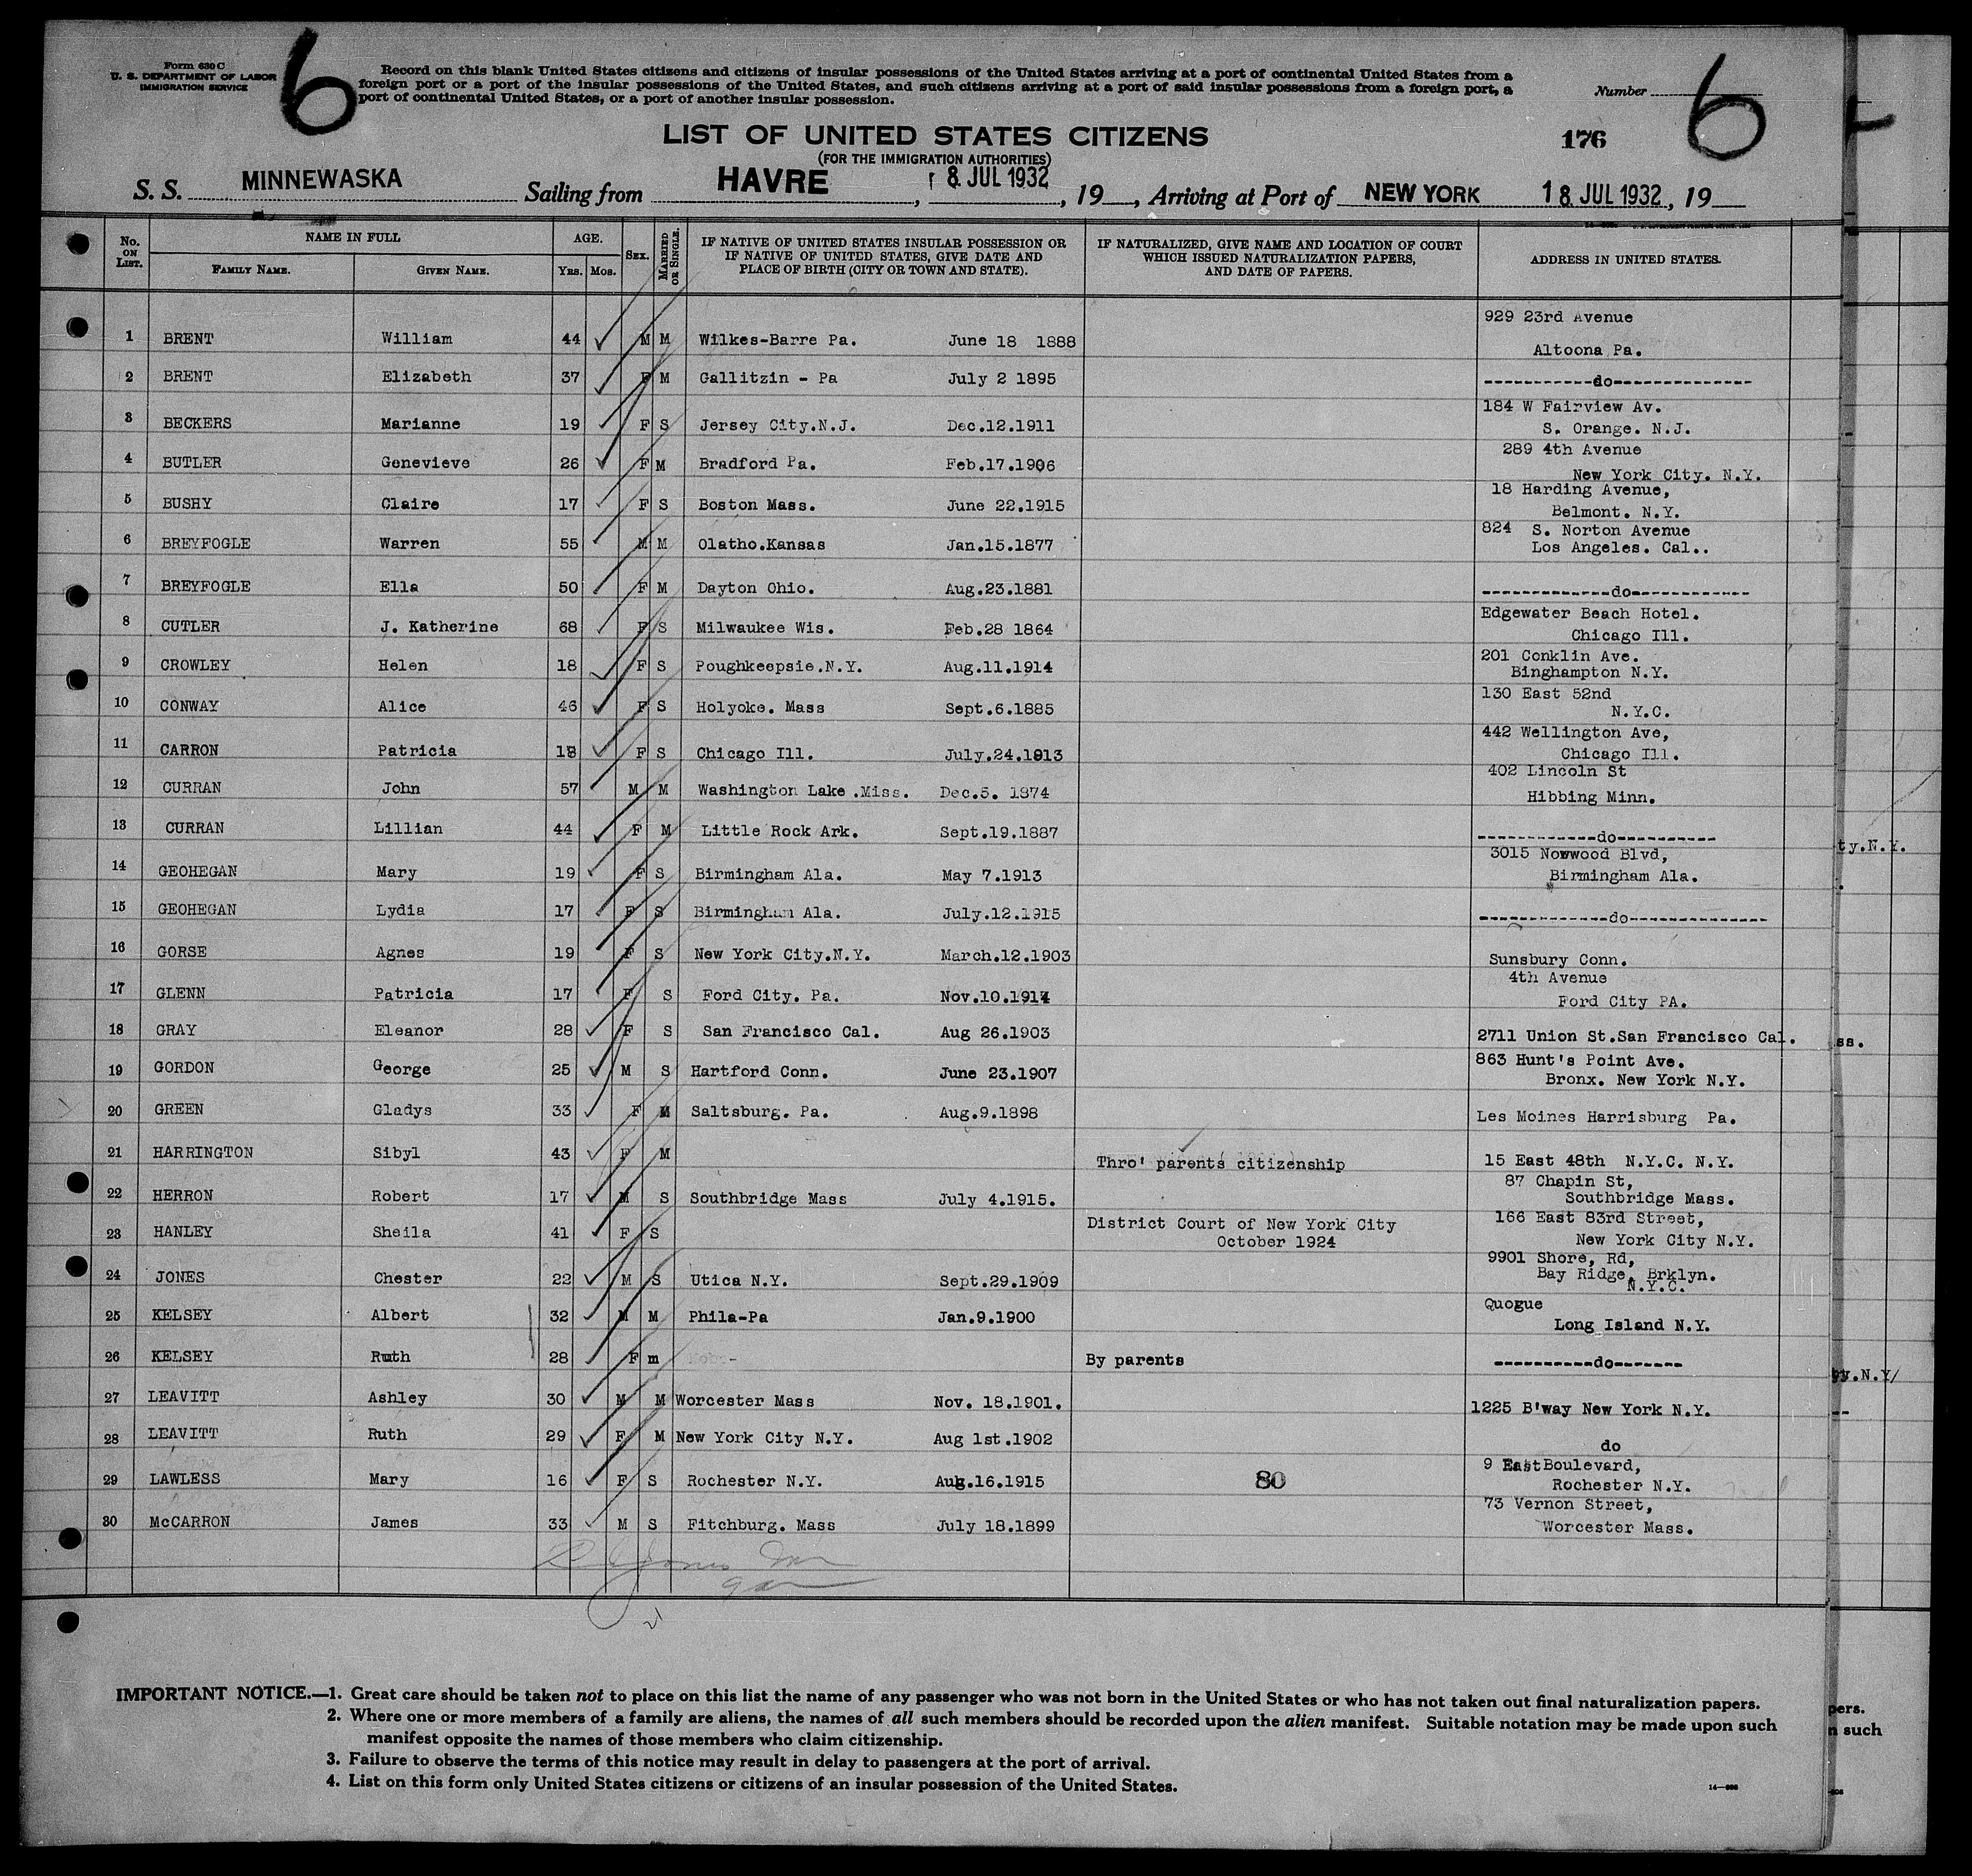 Form 630 C
U. S. DEPARTMENT OF LABOR
IMMIGRATION SERVICE
6
Record on this blank United States citizens and citizens of insular possessions of the United States arriving at a port of continental United States from a
foreign port or a port of the insular possessions of the United States, and such citizens arriving at a port of said insular possessions from a foreign port, a
port of continental United States, or a port of another insular possession.
Number
6
LIST OF UNITED STATES CITIZENS
(FOR THE IMMIGRATION AUTHORITIES)
176
S. S. MINNEWASKA Sailing from HAVRE, 8 JUL 1932, 19__, Arriving at Port of NEW YORK 18 JUL 1932, 19__
No. ON LIST. NAME IN FULL AGE. Sex. MARRIED OR SINGLE. IF NATIVE OF UNITED STATES INSULAR POSSESSION OR IF NATIVE OF UNITED STATES, GIVE DATE AND PLACE OF BIRTH (CITY OR TOWN AND STATE). IF NATURALIZED, GIVE NAME AND LOCATION OF COURT WHICH ISSUED NATURALIZATION PAPERS, AND DATE OF PAPERS. ADDRESS IN UNITED STATES.
FAMILY NAME. GIVEN NAME. Yrs. Mos.
1 BRENT William 44 M M Wilkes-Barre Pa. June 18 1888 929 23rd Avenue
Altoona Pa.
2 BRENT Elizabeth 37 F M Gallitzin - Pa July 2 1895 -----------do--------------
3 BECKERS Marianne 19 F S Jersey City.N.J. Dec.12.1911 184 W Fairview Av.
S. Orange. N.J.
4 BUTLER Genevieve 26 F M Bradford Pa. Feb.17.1906 289 4th Avenue
New York City. N.Y.
5 BUSHY Claire 17 F S Boston Mass. June 22.1915 18 Harding Avenue,
Belmont. N.Y.
6 BREYFOGLE Warren 55 M M Olatho.Kansas Jan.15.1877 824 S. Norton Avenue
Los Angeles. Cal..
7 BREYFOGLE Ella 50 F M Dayton Ohio. Aug.23.1881 -------------do------------
8 CUTLER J. Katherine 68 F S Milwaukee Wis. Feb.28 1864 Edgewater Beach Hotel.
Chicago Ill.
9 CROWLEY Helen 18 F S Poughkeepsie.N.Y. Aug.11.1914 201 Conklin Ave.
Binghampton N.Y.
10 CONWAY Alice 46 F S Holyoke. Mass Sept.6.1885 130 East 52nd
N.Y.C.
11 CARRON Patricia 18 F S Chicago Ill. July.24.1913 442 Wellington Ave,
Chicago Ill.
12 CURRAN John 57 M M Washington Lake .Miss. Dec.5. 1874 402 Lincoln St
Hibbing Minn.
13 CURRAN Lillian 44 F M Little Rock Ark. Sept.19.1887 ------------do----------
14 GEOHEGAN Mary 19 F S Birmingham Ala. May 7.1913 3015 Nowwood Blvd,
Birmingham Ala.
15 GEOHEGAN Lydia 17 F S Birmingham Ala. July.12.1915 -------------do--------------
16 GORSE Agnes 19 F S New York City.N.Y. March.12.1903 Sunsbury Conn.
17 GLENN Patricia 17 F S Ford City. Pa. Nov.10.1914 4th Avenue
Ford City PA.
18 GRAY Eleanor 28 F S San Francisco Cal. Aug 26.1903 2711 Union St.San Francisco Cal.
19 GORDON George 25 M S Hartford Conn. June 23.1907 863 Hunt's Point Ave.
Bronx. New York N.Y.
20 GREEN Gladys 33 F M Saltsburg. Pa. Aug.9.1898 Les Moines Harrisburg Pa.
21 HARRINGTON Sibyl 43 F M Thro' parents citizenship 15 East 48th N.Y.C. N.Y.
22 HERRON Robert 17 M S Southbridge Mass July 4.1915. 87 Chapin St,
Southbridge Mass.
23 HANLEY Sheila 41 F S District Court of New York City 166 East 83rd Street,
October 1924 New York City N.Y.
24 JONES Chester 22 M S Utica N.Y. Sept.29.1909 9901 Shore, Rd,
Bay Ridge, Brklyn.
N.Y.C.
25 KELSEY Albert 32 M M Phila-Pa Jan.9.1900 Quogue
Long Island N.Y.
26 KELSEY Ruth 28 F m By parents -----------do-------
27 LEAVITT Ashley 30 M M Worcester Mass Nov. 18.1901. 1225 B'way New York N.Y.
28 LEAVITT Ruth 29 F M New York City N.Y. Aug 1st.1902 do
29 LAWLESS Mary 16 F S Rochester N.Y. Aug.16.1915 80 9 East Boulevard,
Rochester N.Y.
30 McCARRON James 33 M S Fitchburg. Mass July 18.1899 73 Vernon Street,
Worcester Mass.
IMPORTANT NOTICE.—1. Great care should be taken not to place on this list the name of any passenger who was not born in the United States or who has not taken out final naturalization papers.
2. Where one or more members of a family are aliens, the names of all such members should be recorded upon the alien manifest. Suitable notation may be made upon such
manifest opposite the names of those members who claim citizenship.
3. Failure to observe the terms of this notice may result in delay to passengers at the port of arrival.
4. List on this form only United States citizens or citizens of an insular possession of the United States.
ty.N.Y.
ss.
y.N.Y/
pers.
n such